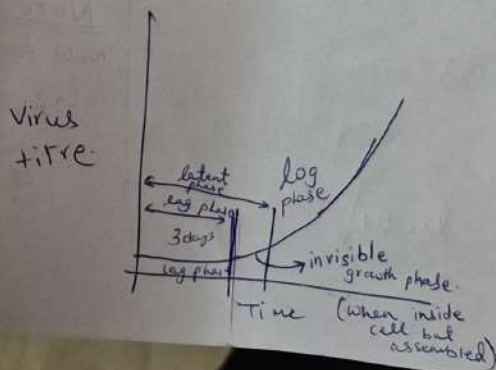 Virus
titre.
latent
phase
lag phase
3 days
lag phase
log
phase
invisible
growth phase.
Time
(when inside
cell but
assembled)